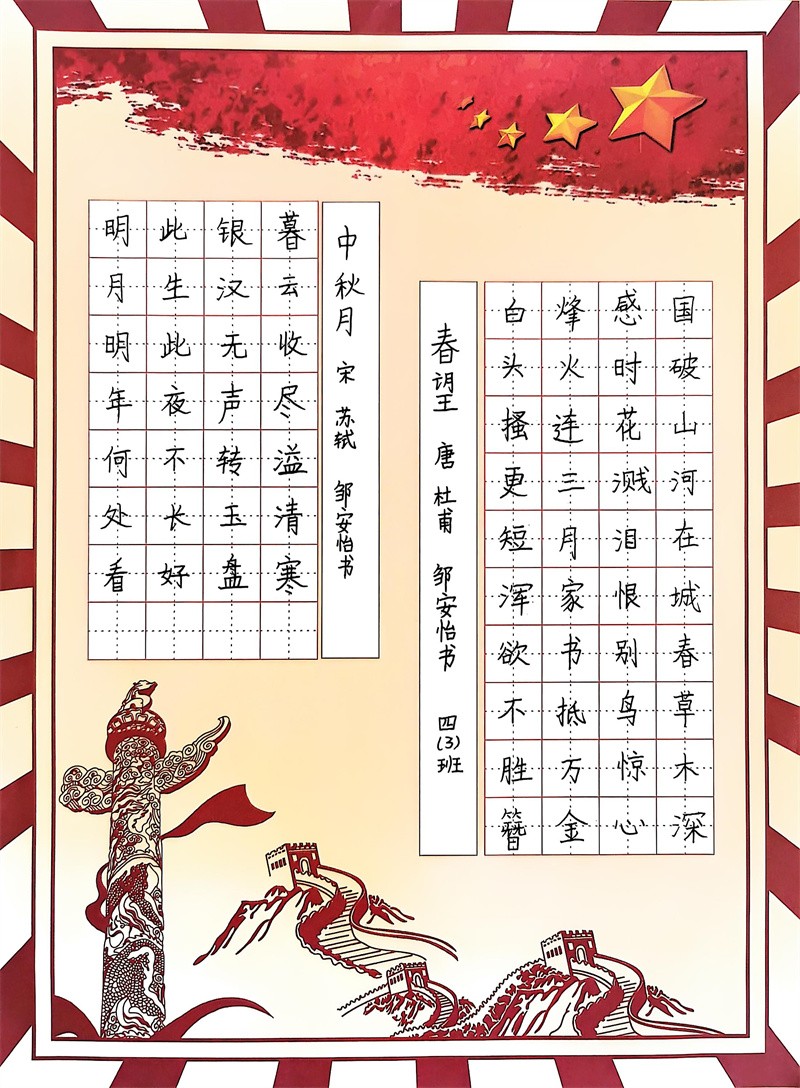 国破山河在城春草木深
感时花溅泪恨别鸟惊心
烽火连三月家书抵万金
白头搔更短浑欲不胜簪
春望 唐 杜甫 邹安怡书 四(3)班
中秋月 宋 苏轼 邹安怡书
暮云收尽溢清寒
银汉无声转玉盘
此生此夜不长好
明月明年何处看